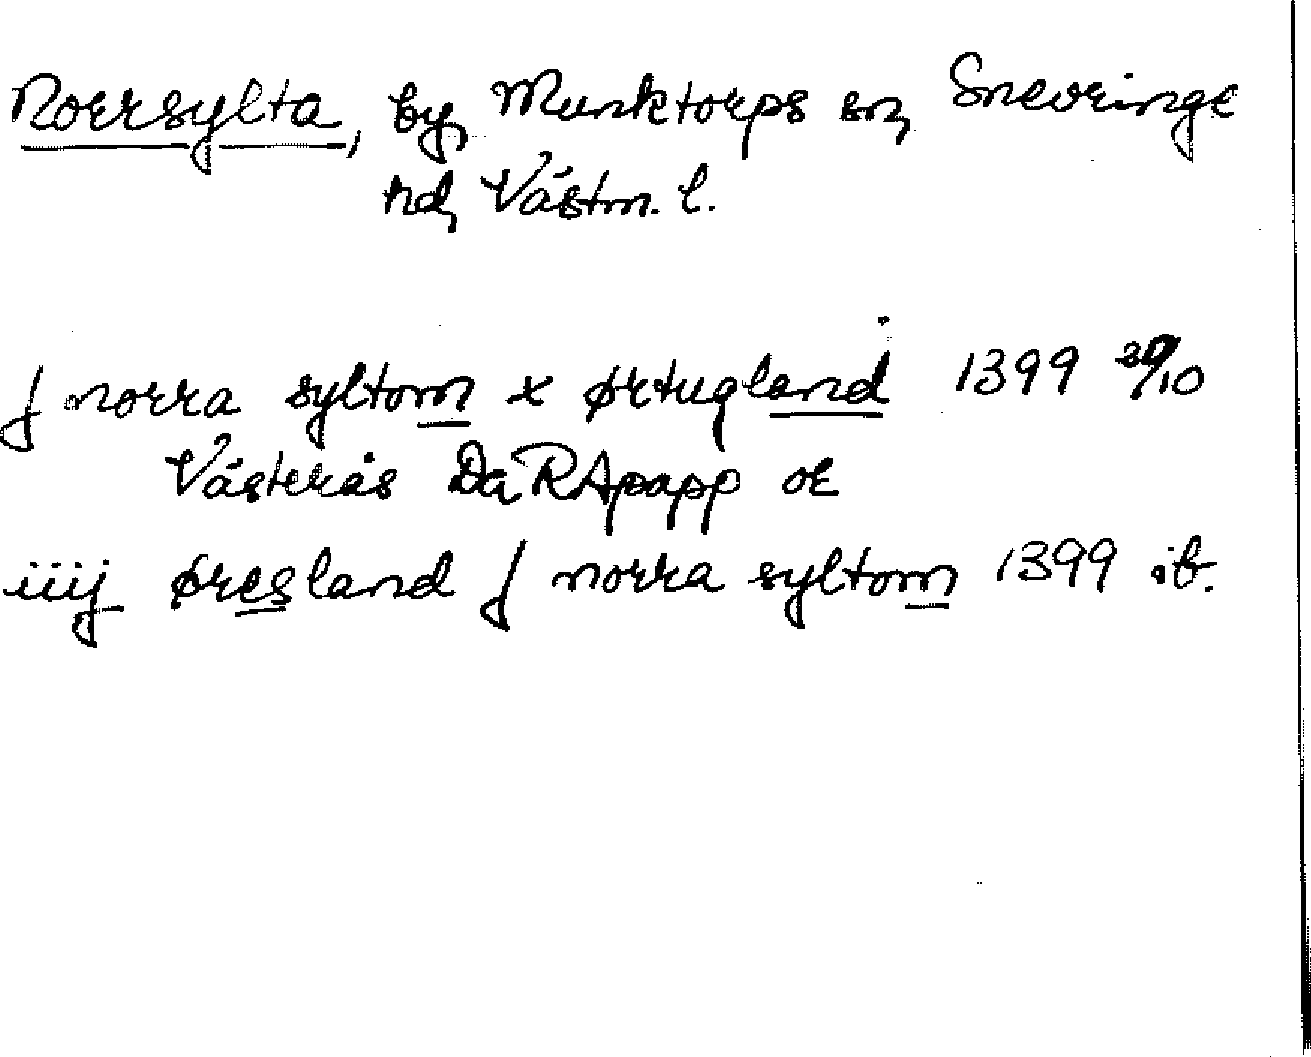 Norrsylta, by, Munktorps sn, Snevringe
hd, Västm. l.
j norra syltom x ørtugland 1399 /10
Västerås Da RApapp or
iiij øresland j norra syltom 1399 ib.